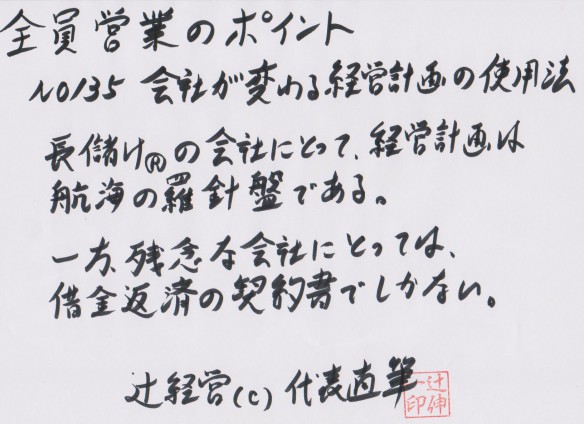 全員営業のポイント
NO135 会社が変わる経営計画の使用法
長儲け®の会社にとって、経営計画は
航海の羅針盤である。
一方、残念な会社にとっては、
借金返済の契約書でしかない。
辻経営(c) 代表直筆
辻伸一印